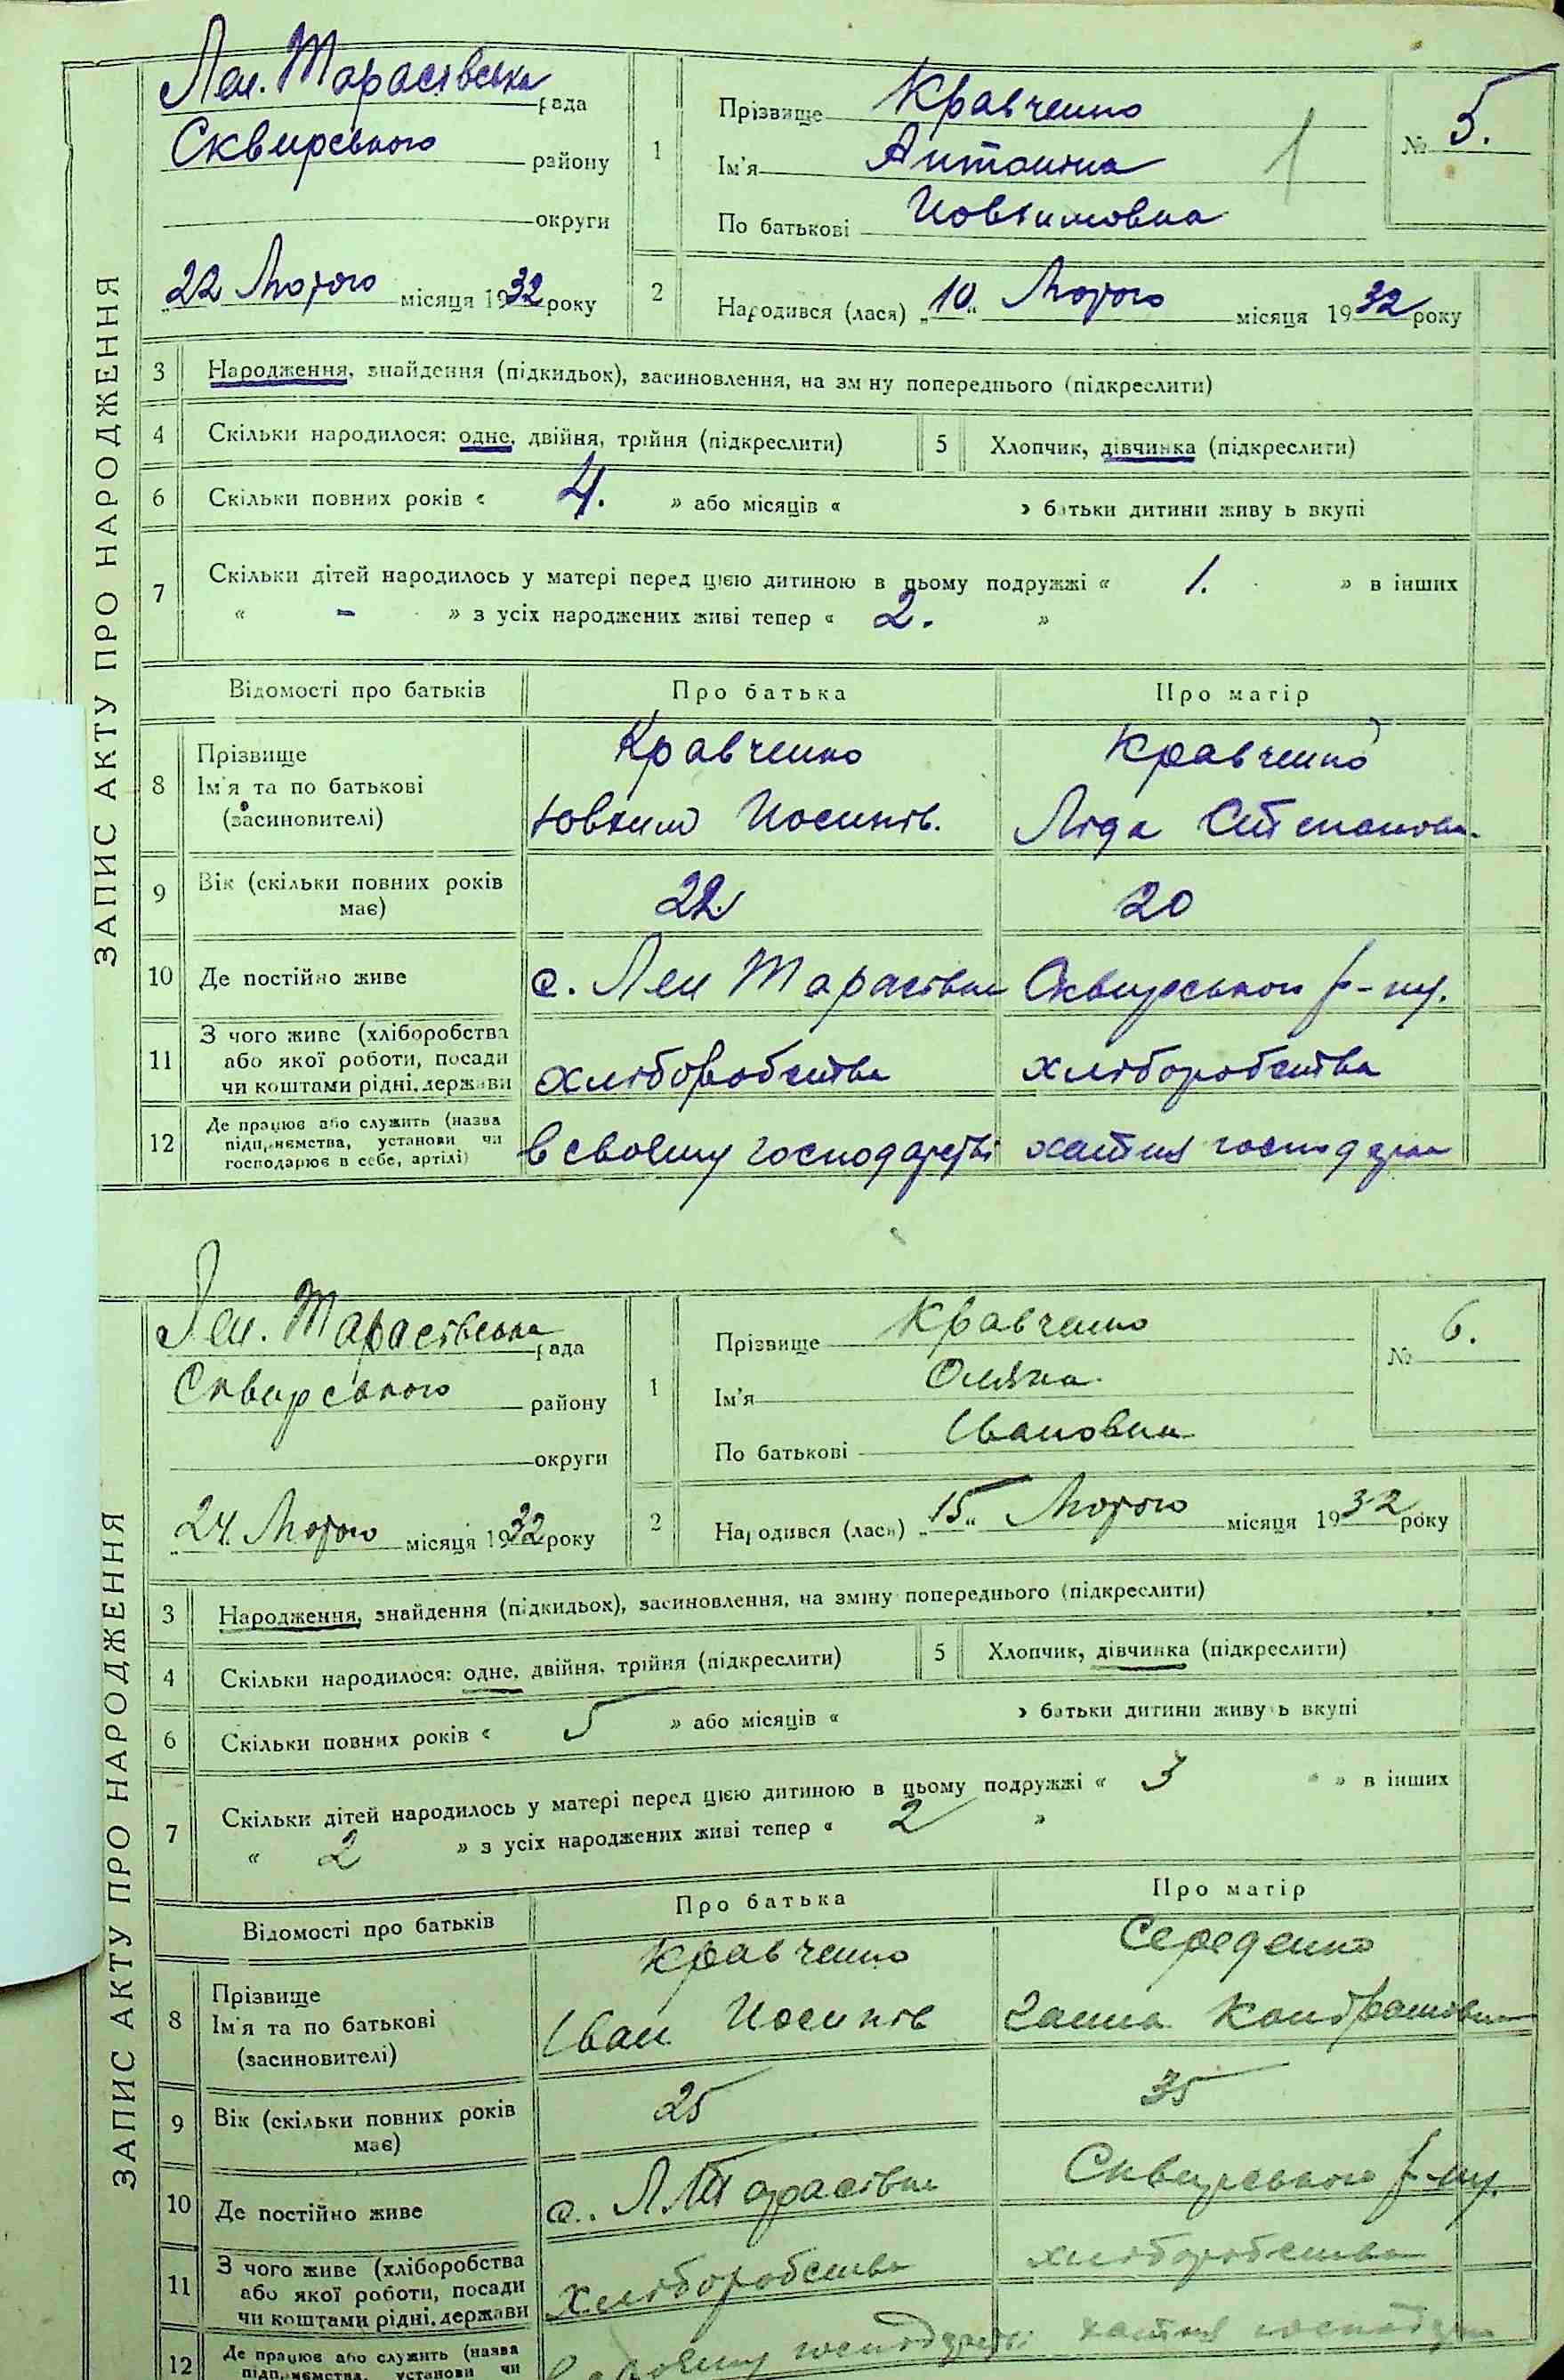 ЗАПИС АКТУ ПРО НАРОДЖЕННЯ
Лен. Тарасівська рада
Сквирського району
округи
22 Лютого місяця 1932 року
1
Прізвище Кравченко
Ім'я Антоніна
По батькові Йовхимовна
№ 5.
2
Народився (лася) „10„ Лютого місяця 1932 року
3 Народження, знайдення (підкидьок), засиновлення, на зміну попереднього (підкреслити)
4 Скільки народилося: одне, двійня, трійня (підкреслити) 5 Хлопчик, дівчинка (підкреслити)
6 Скільки повних років « 4. » або місяців « » батьки дитини живуть вкупі
7 Скільки дітей народилось у матері перед цією дитиною в цьому подружжі « 1. » в інших
« - » з усіх народжених живі тепер « 2. »
Відомості про батьків Про батька Про матір
8 Прізвище Кравченко Кравченко
Ім'я та по батькові Йосипів. Ліда Степановн.
(засиновителі)
9 Вік (скільки повних років має) 22 20
10 Де постійно живе с. Лен Тарасівка Сквирського р-ну.
11 З чого живе (хліборобства або якої роботи, посади чи коштами рідні, держави хліборобства хліборобства
12 Де працює або служить (назва підприємства, установи чи господарює в себе, артілі) в своєму господарстві хатня господарка
ЗАПИС АКТУ ПРО НАРОДЖЕННЯ
Лен. Тарасівська рада
Сквирського району
округи
24 Лютого місяця 1932 року
1
Прізвище Кравченко
Ім'я
По батькові Івановна
№ 6.
2
Народився (лася) „15„ Лютого місяця 1932 року
3 Народження, знайдення (підкидьох), засиновлення, на зміну попереднього (підкреслити)
4 Скільки народилося: одне, двійня, трійня (підкреслити) 5 Хлопчик, дівчинка (підкреслити)
6 Скільки повних років « 5 » або місяців « » батьки дитини живуть вкупі
7 Скільки дітей народилось у матері перед цією дитиною в цьому подружжі « 3 » в інших
« 2 » з усіх народжених живі тепер « 2 »
Відомості про батьків Про батька Про матір
8 Прізвище Кравченко Середенко
Ім'я та по батькові Іван Йосипів Ганна Кондратовна
(засиновителі)
9 Вік (скільки повних років має) 25 35
10 Де постійно живе с. Л Тарасівка Сквирського р-ну.
11 З чого живе (хліборобства або якої роботи, посади чи коштами рідні, держави хліборобства хліборобства
12 Де працює або служить (назва підприємства, установи чи в своєму господарстві хатня господарка